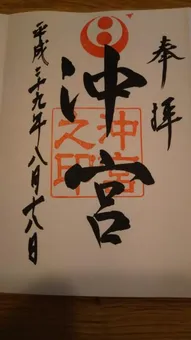 奉拝
沖宮
沖宮
之印
平成二十九年八月十八日